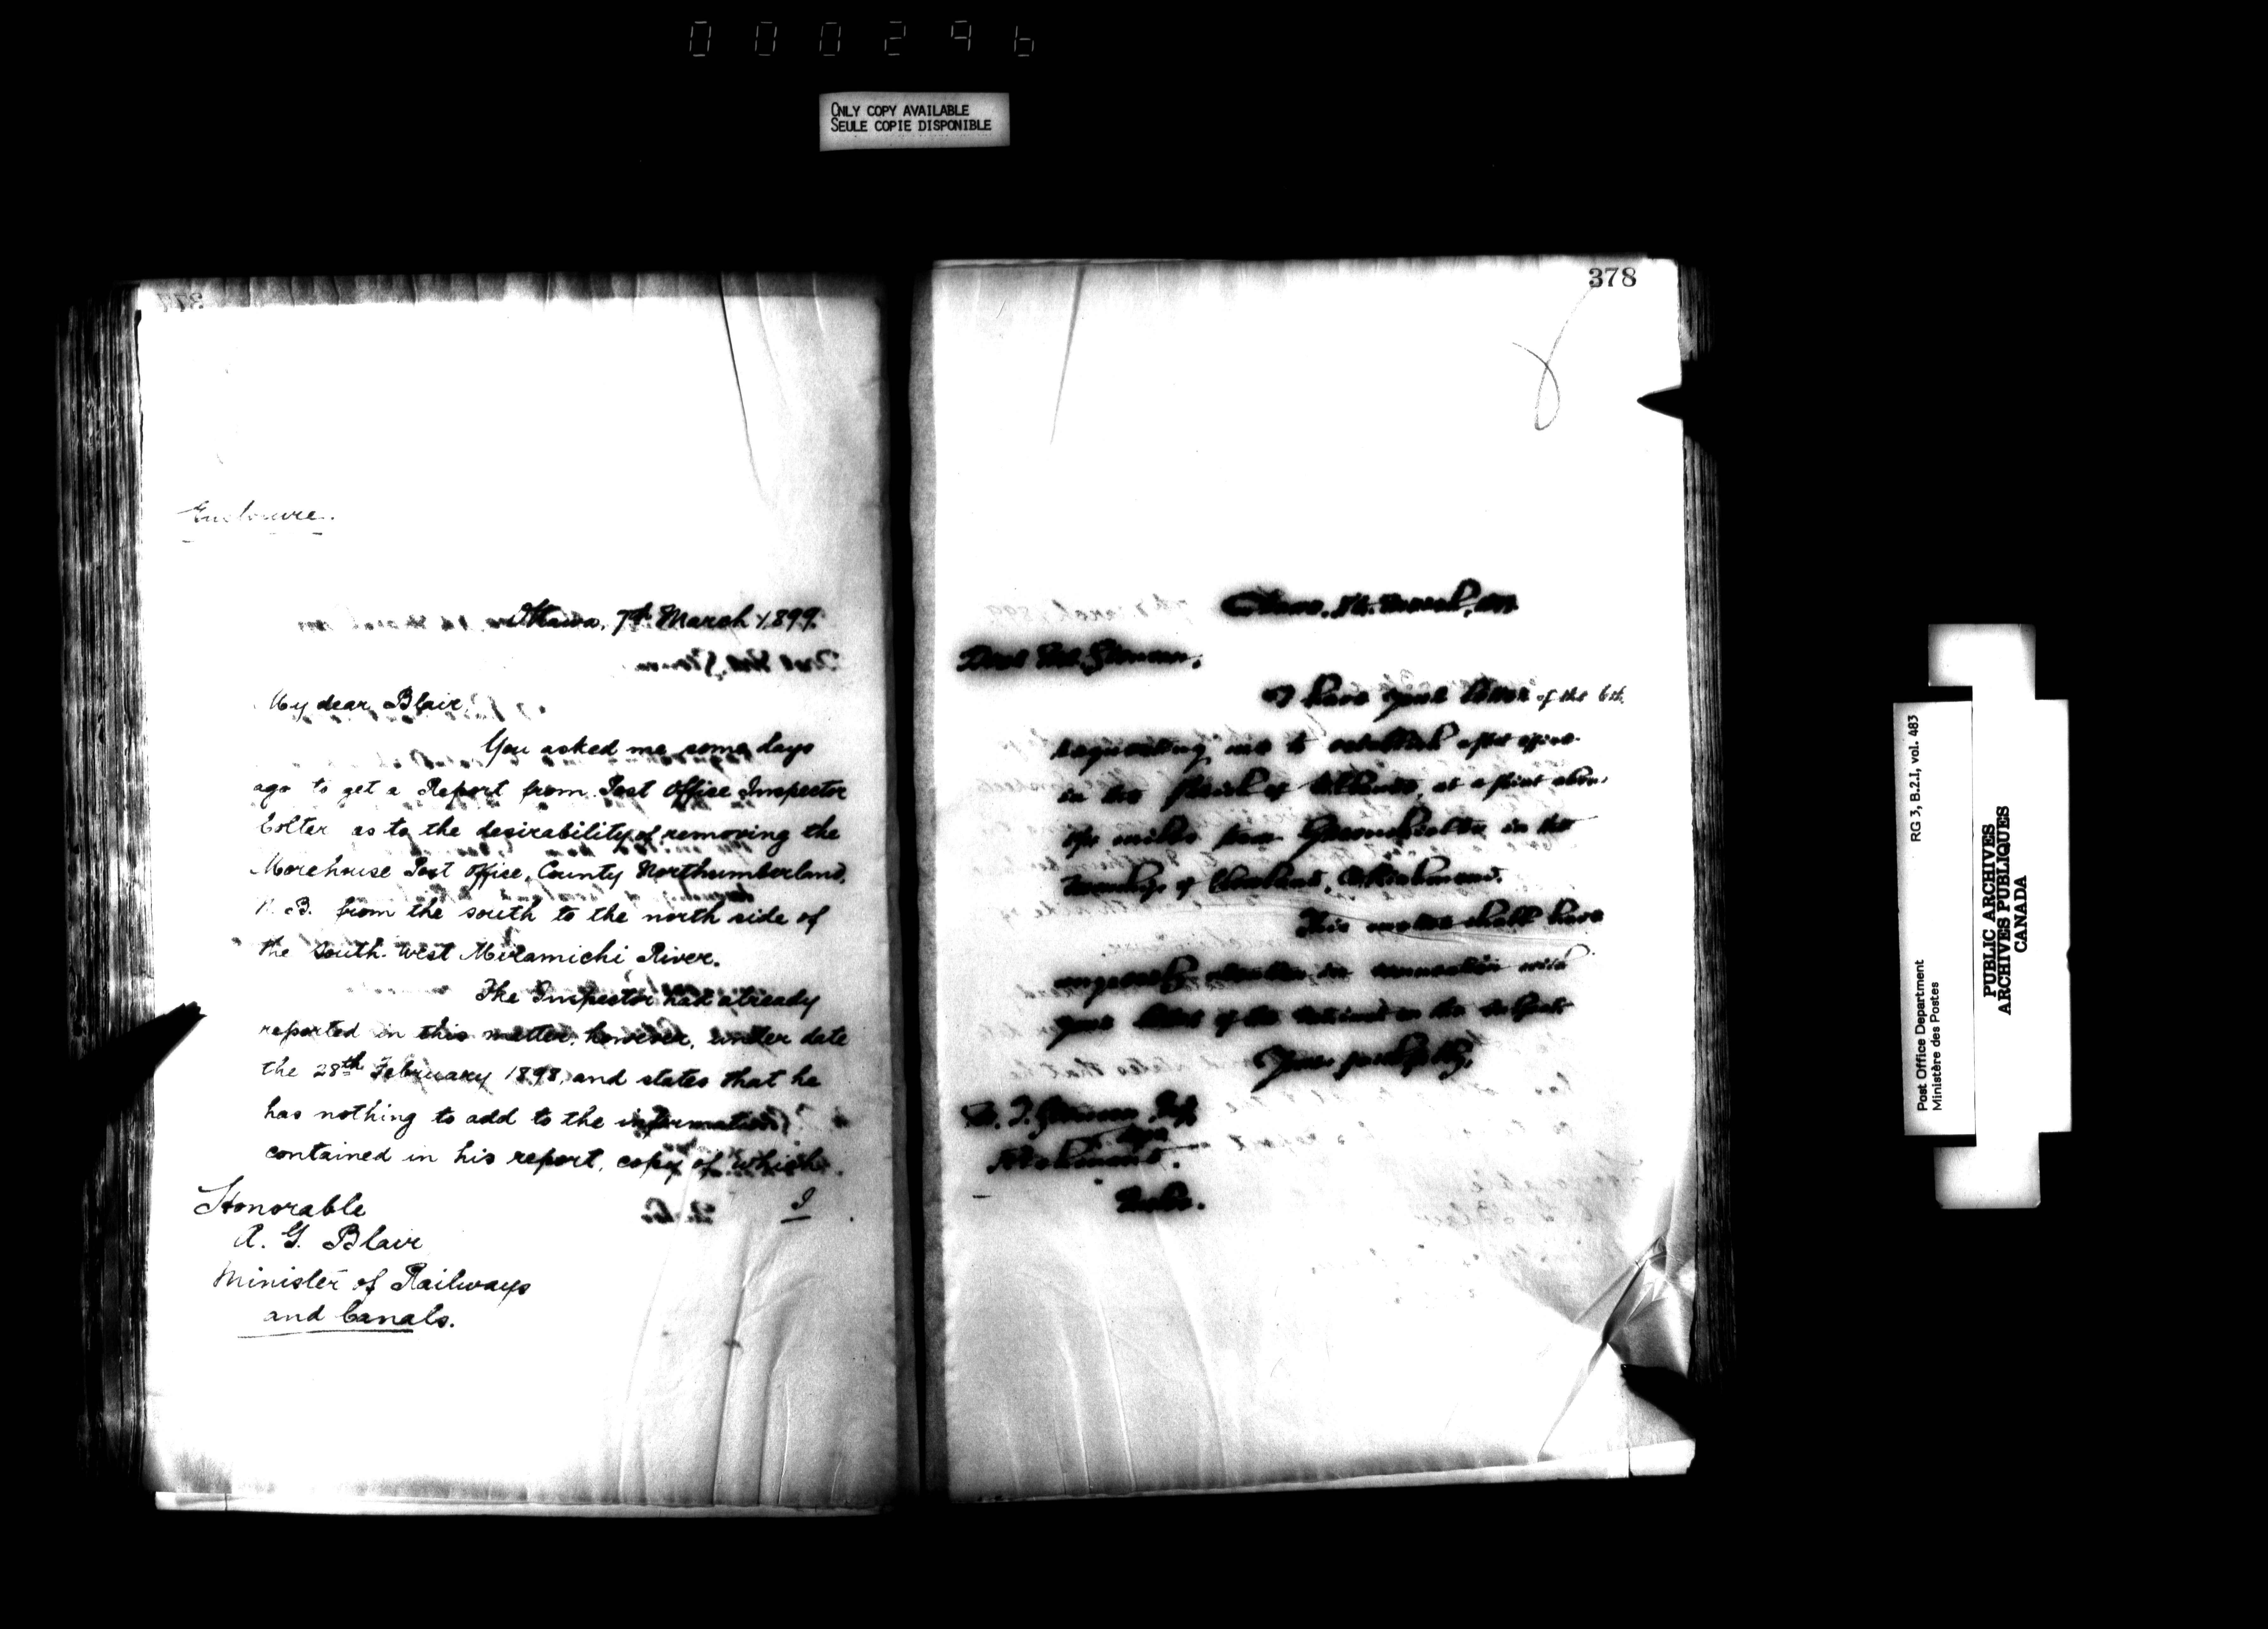 000296
ONLY COPY AVAILABLE
SEULE COPIE DISPONIBLE
Enclosure.
Ottawa, 7th March 1899.
My dear Blair,
You asked me some days
ago to get a Report from Post Office Inspector
Colter as to the desirability of removing the
Morehouse Post Office, County Northumberland,
N. B. from the south to the north side of
the South-West Miramichi River.
The Inspector had already
reported in this matter, however, under date
the 28th February 1898, and states that he
has nothing to add to the information
contained in his report, copy of which
I
Honorable
A. G. Blair
Minister of Railways
and Canals.
378
March,
Dear Mr.
I have your letter of the 6th.
requesting me to establish a post office
in the at a point
miles from in the
Township of Cleveland, Co. Richmond.
This matter shall have
attention in connection with
your letter of the
Yours faithfully,
Richmond.
Quebec.
Post Office Department
Ministère des Postes
RG 3, B.2.I, vol. 483
PUBLIC ARCHIVES
ARCHIVES PUBLIQUES
CANADA